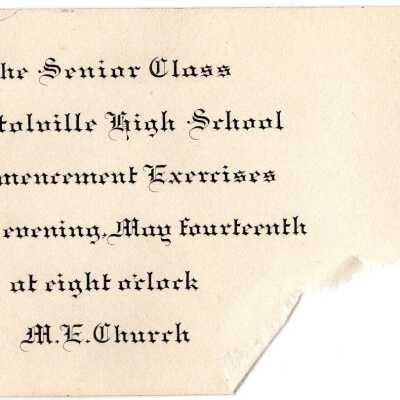 he Senior Class
tolville High School
mencement Exercises
evening, May fourteenth
at eight o'clock
M. E. Church